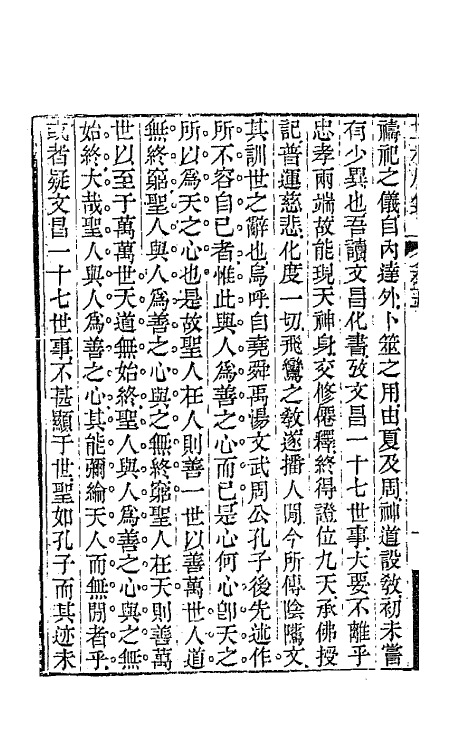 禱祀之儀自內達外卜筮之用由夏及周神道設敎初未嘗
有少異也吾讀文昌化書攷文昌一十七世事大要不離乎
忠孝兩端故能現天神身交修僊釋終得證位九天承佛授
記普運慈悲化度一切飛鸞之敎遂播人閒今所傳陰騭文
其訓世之辭也烏呼自堯舜禹湯文武周公孔子後先迭作。
所。不。容。自。已。者。惟。此。與。人。爲。善。之。心。而。已。是。心。何。心。卽。天。之。
所。以。爲。天。之。心。也。是。故。聖。人。在。人。則。善。一。世。以。善。萬。世。人。道。
無。終。窮。聖。人。與。人。爲。善。之。心。與。之。無。終。窮。聖。人。在。天。則。善。萬。
世。以。至。于。萬。萬。世。天。道。無。始。終。聖。人。與。人。爲。善。之。心。與。之。無。
始。終。大。哉。聖。人。與。人。爲。善。之。心。其。能。彌。綸。天。人。而。無。閒。者。乎。
或者疑文昌一十七世事不甚顯于世聖如孔子而其迹未